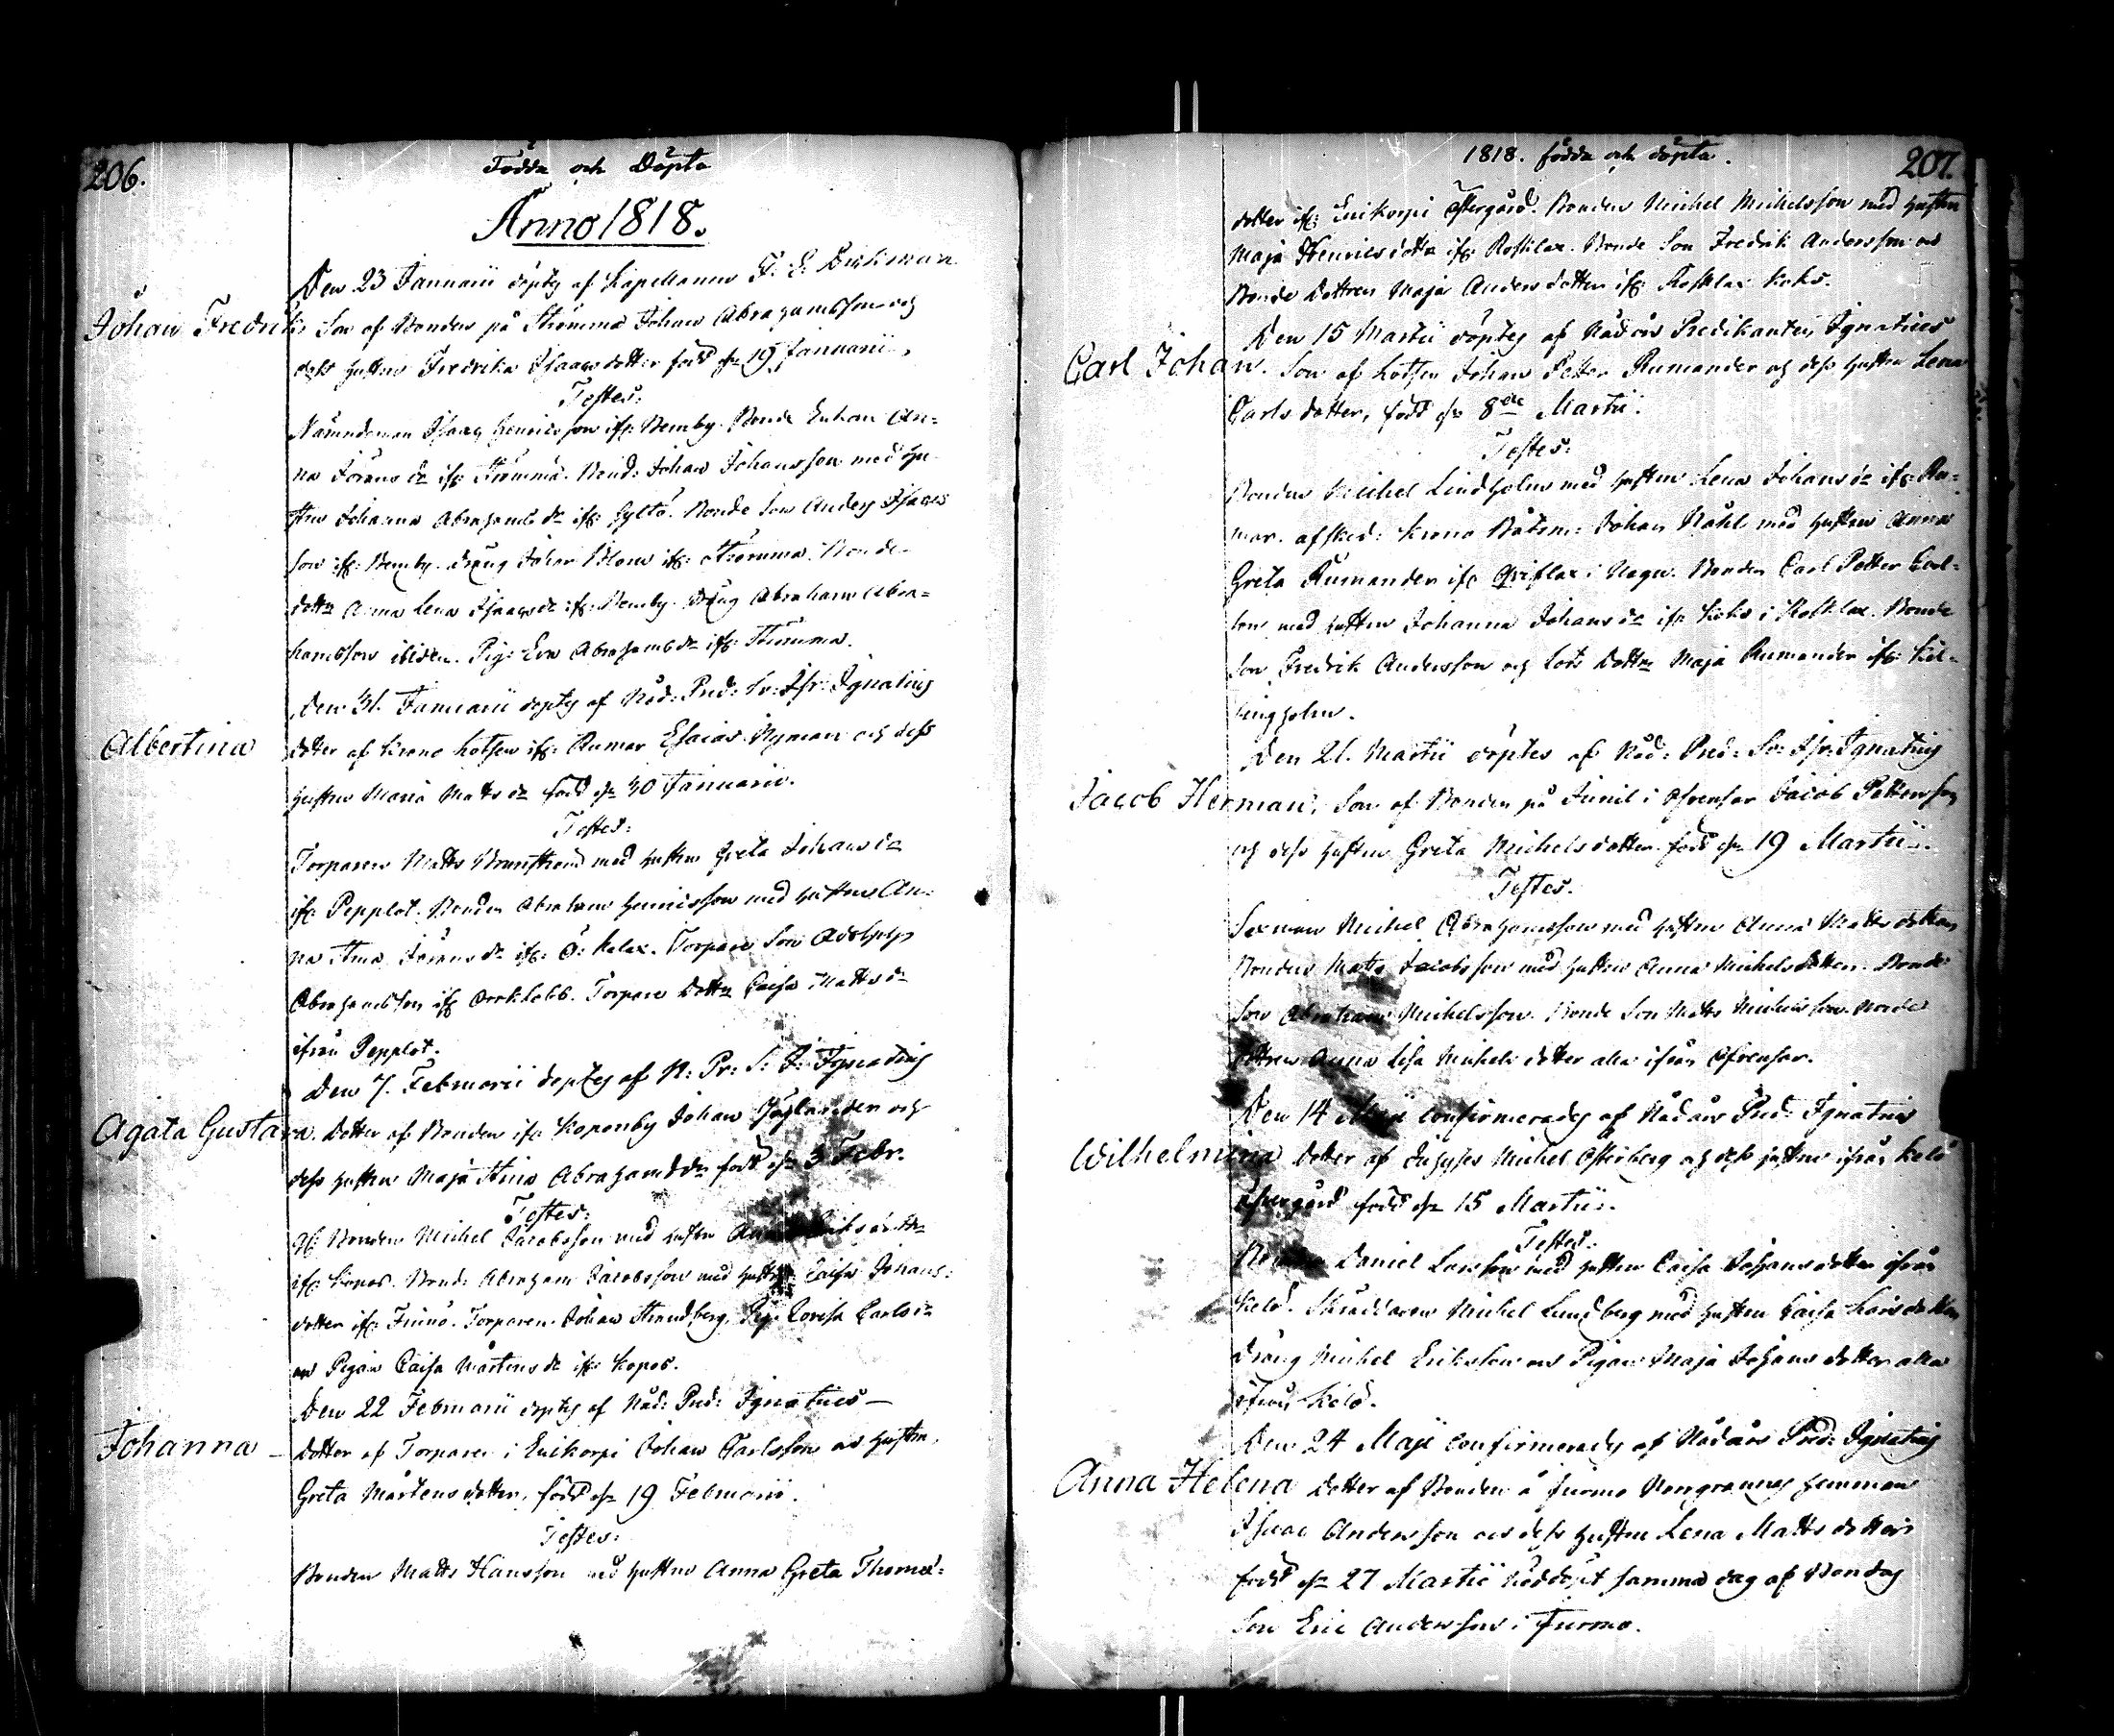 206.
Födde och Döpte
Anno 1818.
Den 23 Januarii döptes af Kapellanen F. E.
Johan Fredrik, Son af Bonden på Strömma Johan Abrahamsson och
dess hustru Fredrika Isaacsdotter född d. 19 Januarii.
Testes:
Nämndeman Isaac Henricsson ifr: Bemby. Bonde Enkan An=
na Jörans dr ifr: Strömma. Bond: Johan Johansson med hu-
stru Johanna Abrahams dr ifr: Gyltö. Bonde Son Anders Isaacs
son ifr: Bemby. Dräng Johan Blom ifr: Strömma. Bonde
dottr Anna Lena Isaacs dr ifr: Bemby. Dräng Abraham Abra=
hamsson ibidem. Pig: Eva Abrahams dr ifr: Strömma.
Den 31. Januarii döptes af Nåd: Pred: Sv: Isr: Ignatius
Albertina dotter af Krono Lotsen ifr: Rumar Esaias Nyman och dess
hustru Maria Matts dr född d. 30 Januarii.
Testes:
Torparen Matts Brunström med hustru Greta Johans dr
ifr: Pepplot. Bonden Abraham Henricsson med hustru An=
na Stina Jörans dr ifr: Ö: Kelax. Torpare Son Adolph
Abrahamsson ifr: Torpare Dottr Caisa Matts dr
ifrån Pepplot.
Den 7. Februarii döptes af N: Pr: S: I: Ignatius
Agata Gustava. Dotter af Bonden ifr: Koponby Johan och
dess hustru Maja Stina Abrahamsdr född d. 3 Febr.
Testes:
Bonden Michel Jacobsson med hustru
ifr: Kopos. Bond: Abraham Jacobsson med hustru Caisa Johans=
dotter ifr: Finnö. Torparen Johan Strandberg, Pig: Lovisa Carls dr
och Pigan Caisa Mårtens dr ifr: Kopos.
Den 22 Februarii döptes af Nåd: Pred: Ignatius —
Johanna — dotter af Torparen i Enikorpi Johan Carlsson och hustru
Greta Mårtensdotter, född d. 19 Februarii.
Testes:
Bonden Matts Hansson med hustru Anna Greta Thomæ=
1818. födde och döpte.
207.
dotter ifr: Enikorpi Östergård. Bonden Michel Michelsson med hustru
Maja Henricsdotter ifr: Rosklax. Bonde Son Fredrik Andersson och
Bonde Dottren Maja Anders dotter ifr: Rosklax Koks.
Den 15 Martii döptes af Nådårs Predikanten Ignatius
Carl Johan. Son af Lotsen Johan Petter Rumander och dess hustru Lena
Carls dotter, född d. 8de Martii.
Testes:
Bonden Michel Lindholm med hustru Lena Johans dr ifr: Ru=
mar. afsked: Krono Båtsm: Johan Ståhl med hustru Anna
Greta Rumander ifr: i Nagu. Bonden Carl Petter Carl=
son med hustru Johanna Johans dr ifr: Koks i Rosklax. Bonde
Son Fredrik Andersson och Lots Dottr Maja Rumander ifr: Kil=
lingholm.
Den 21. Martii döptes af Nåd: Pred: Sv: Isr: Ignatius
Jacob Herman, Son af Bonden på i Ahvensar Jacob Pettersson
och dess hustru Greta Michelsdotter född d. 19 Martii.
Testes.
Sexman Michel Abrahamsson med hustru Anna Mattsdotter,
Bonden Matts Jacobsson med hustru Anna Michelsdotter. Bonde
Son Abraham Michelsson. Bonde Son Matts Michelsson. Bonde
dottren Anna Lisa Michels dotter alla ifrån Ahvensar.
Den 14 Maji confirmerades af Nådårs Pred: Ignatius
Wilhelmina Dotter af Michel Österberg och dess hustru ifrån Kelö
född d. 15 Martii.
Testes:
Bonden Daniel Larsson med hustru Caisa Johansdotter ifrån
Kelö. Skräddaren Michel Lundberg med hustru Caisa Larsdotter
Dräng Michel Eriksson och Pigan Maja Johans dotter alla
ifrån Kelö.
Den 24 Maji confirmerades af Nådårs Pred: Ignatius
Anna Helena Dotter af Bonden å Jurmo hemman
Isaac Andersson och dess hustru Lena Matts dotter
född d. 27 Martii nöddöpt samma dag af Bondens
Son Eric Andersson i Jurmo.